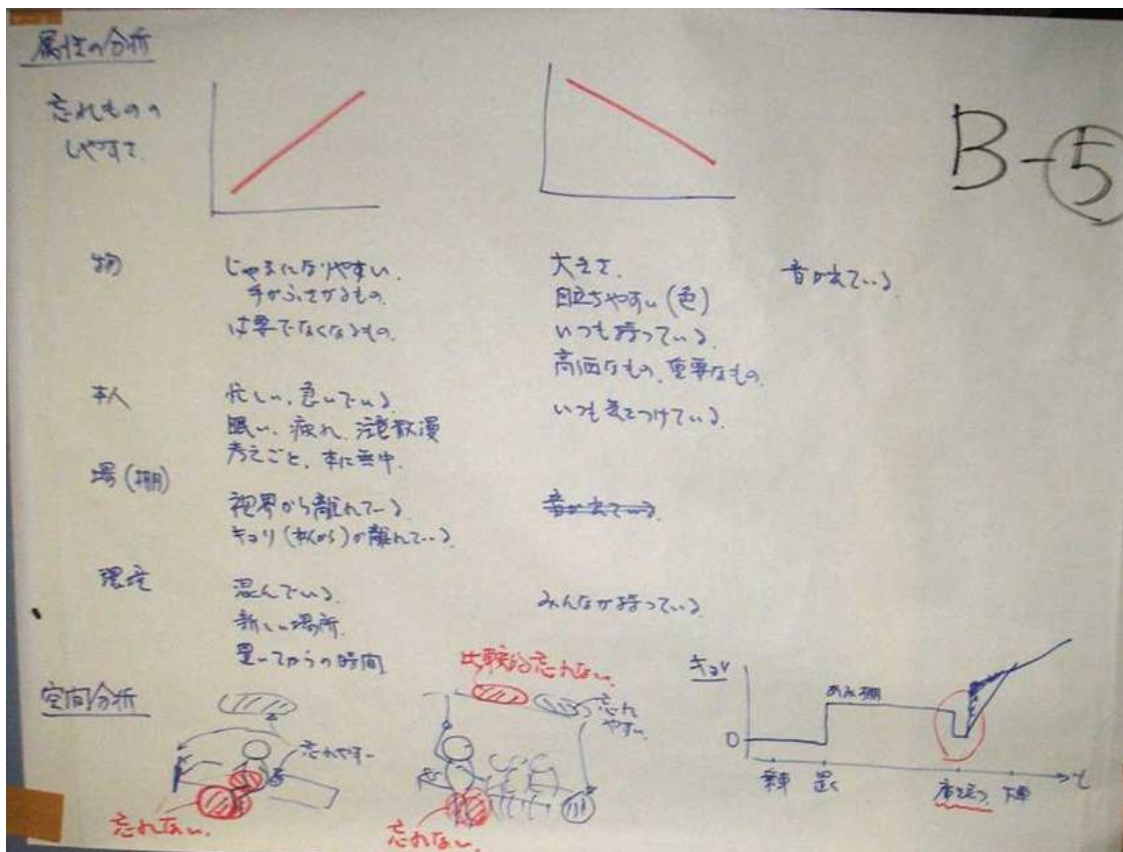 属性の分析
忘れものの
しやすさ
B-⑤
物
じゃまになりやすい.
手がふさがるもの.
必要でなくなるもの.
大きさ.
目立ちやすい(色)
いつも持っている.
高価なもの, 重要なもの
音が出ている.
本人
忙しい, 急いでいる
眠い, 疲れ, 注意散漫
考えごと, 本に夢中.
いつも気をつけている.
場(棚)
視界から離れている
キョリ(本人から)が離れている
音が出ている
環境
混んでいる.
新しい場所.
置いてからの時間
みんなが持っている
空間分析
忘れやすい
忘れない.
比較的忘れない.
忘れ
やすい
忘れない.
キョリ
あみ棚
0
乗車
置く
席を立つ
下車
t